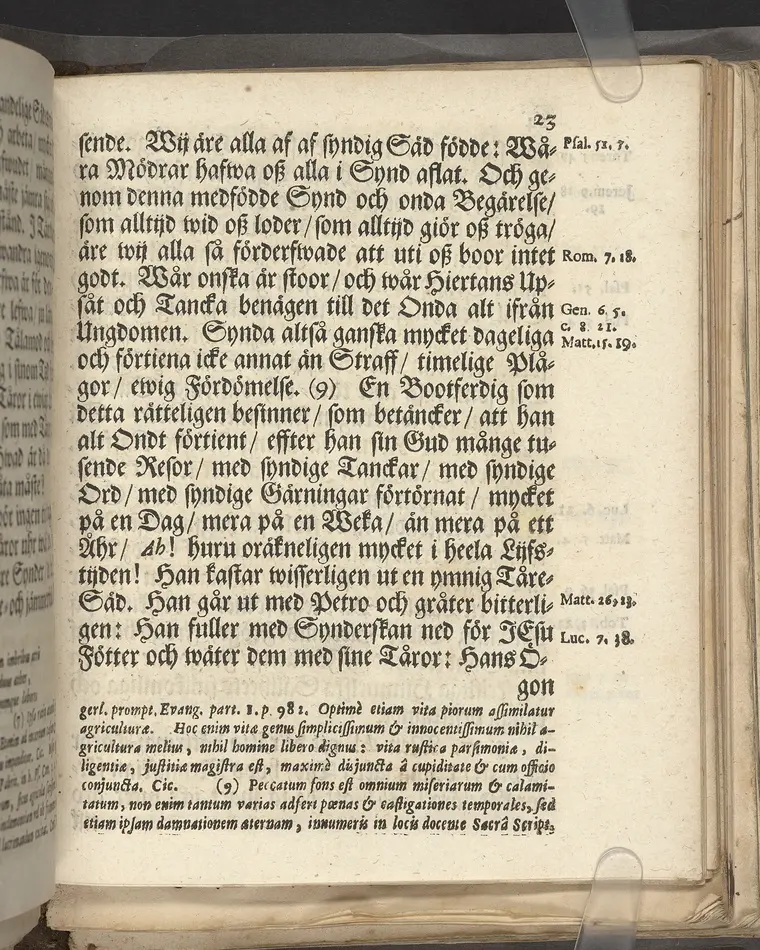 23
sende. Wij äre alla af af syndig Säd födde: Wå-
ra Mödrar hafwa oß alla i Synd aflat. Och ge-
nom denna medfödde Synd och onda Begärelse/
som alltijd wid oß loder/ som alltijd giör oß tröga/
äre wij alla så förderfwade att uti oß boor intet
godt. Wår onska är stoor/ och wår Hiertans Up-
såt och Tancka benägen till det Onda alt ifrån
Ungdomen. Synda altså ganska mycket dageliga
och förtiena icke annat än Straff/ timelige Plå-
gor/ ewig Fördömelse. (9) En Bootferdig som
detta rätteligen besinner/ som betäncker/ att han
alt Ondt förtient/ effter han sin Gud många tu-
sende Resor/ med syndige Tanckar/ med syndige
Ord/ med syndige Gärningar förtörnat/ mycket
på en Dag/ mera på en Weka/ än mera på ett
Åhr/ Ah! huru oräkneligen mycket i heela Lijfs-
tijden! Han kastar wisserligen ut en ymnig Tåre-
Säd. Han går ut med Petro och gråter bitterli-
gen: Han fuller med Synderskan ned för JEsu
Fötter och wäter dem med sine Tåror: Hans Ö-
gon
Psal. 51. 7.
Rom. 7. 18.
Gen. 6. 5.
c. 8. 21.
Matt. 15. 19.
Matt. 26, 13.
Luc. 7. 38.
gerl. prompt. Evang. part. 1. p. 982. Optimè etiam vita piorum assimilatur
agriculturæ. Hoc enim vitæ genus simplicissimum & innocentissimum nihil a-
gricultura melius, nihil homine libero dignus: vita rustica parsimoniæ, di-
ligentiæ, justitiæ magistra est, maximè disjuncta â cupiditate & cum officio
conjuncta. Cic. (9) Peccatum fons est omnium miseriarum & calami-
tatum, non enim tantum varias adfert pœnas & castigationes temporales, sed
etiam ipsam damnationem æternam, innumeris in locis docente Sacrâ Script,